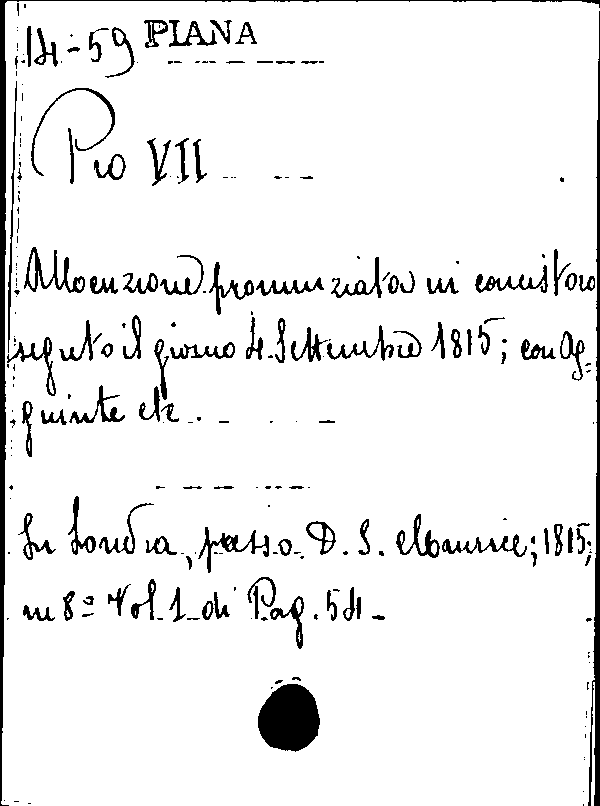 14-59 PIANA
Pio VII
Allocuzione pronunziata in concistoro
segreto il giorno 4 Settembre 1815; con Ag=
giunte etc.
In Londra, presso D. S. Maurice; 1815;
in 8º Vol. 1 di Pag. 54-